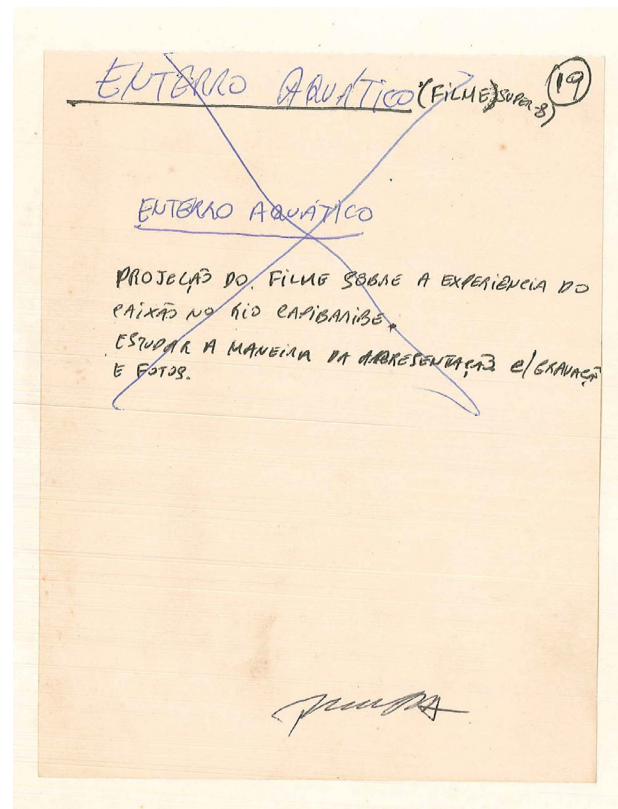 ENTERRO AQUÁTICO (FILME) SUPER-8 19
ENTERRO AQUÁTICO
PROJEÇÃO DO FILME SOBRE A EXPERIÊNCIA DO
CAIXÃO NO RIO CAPIBARIBE.
ESTUDAR A MANEIRA DA APRESENTAÇÃO C/GRAVAÇÃO
E FOTOS.